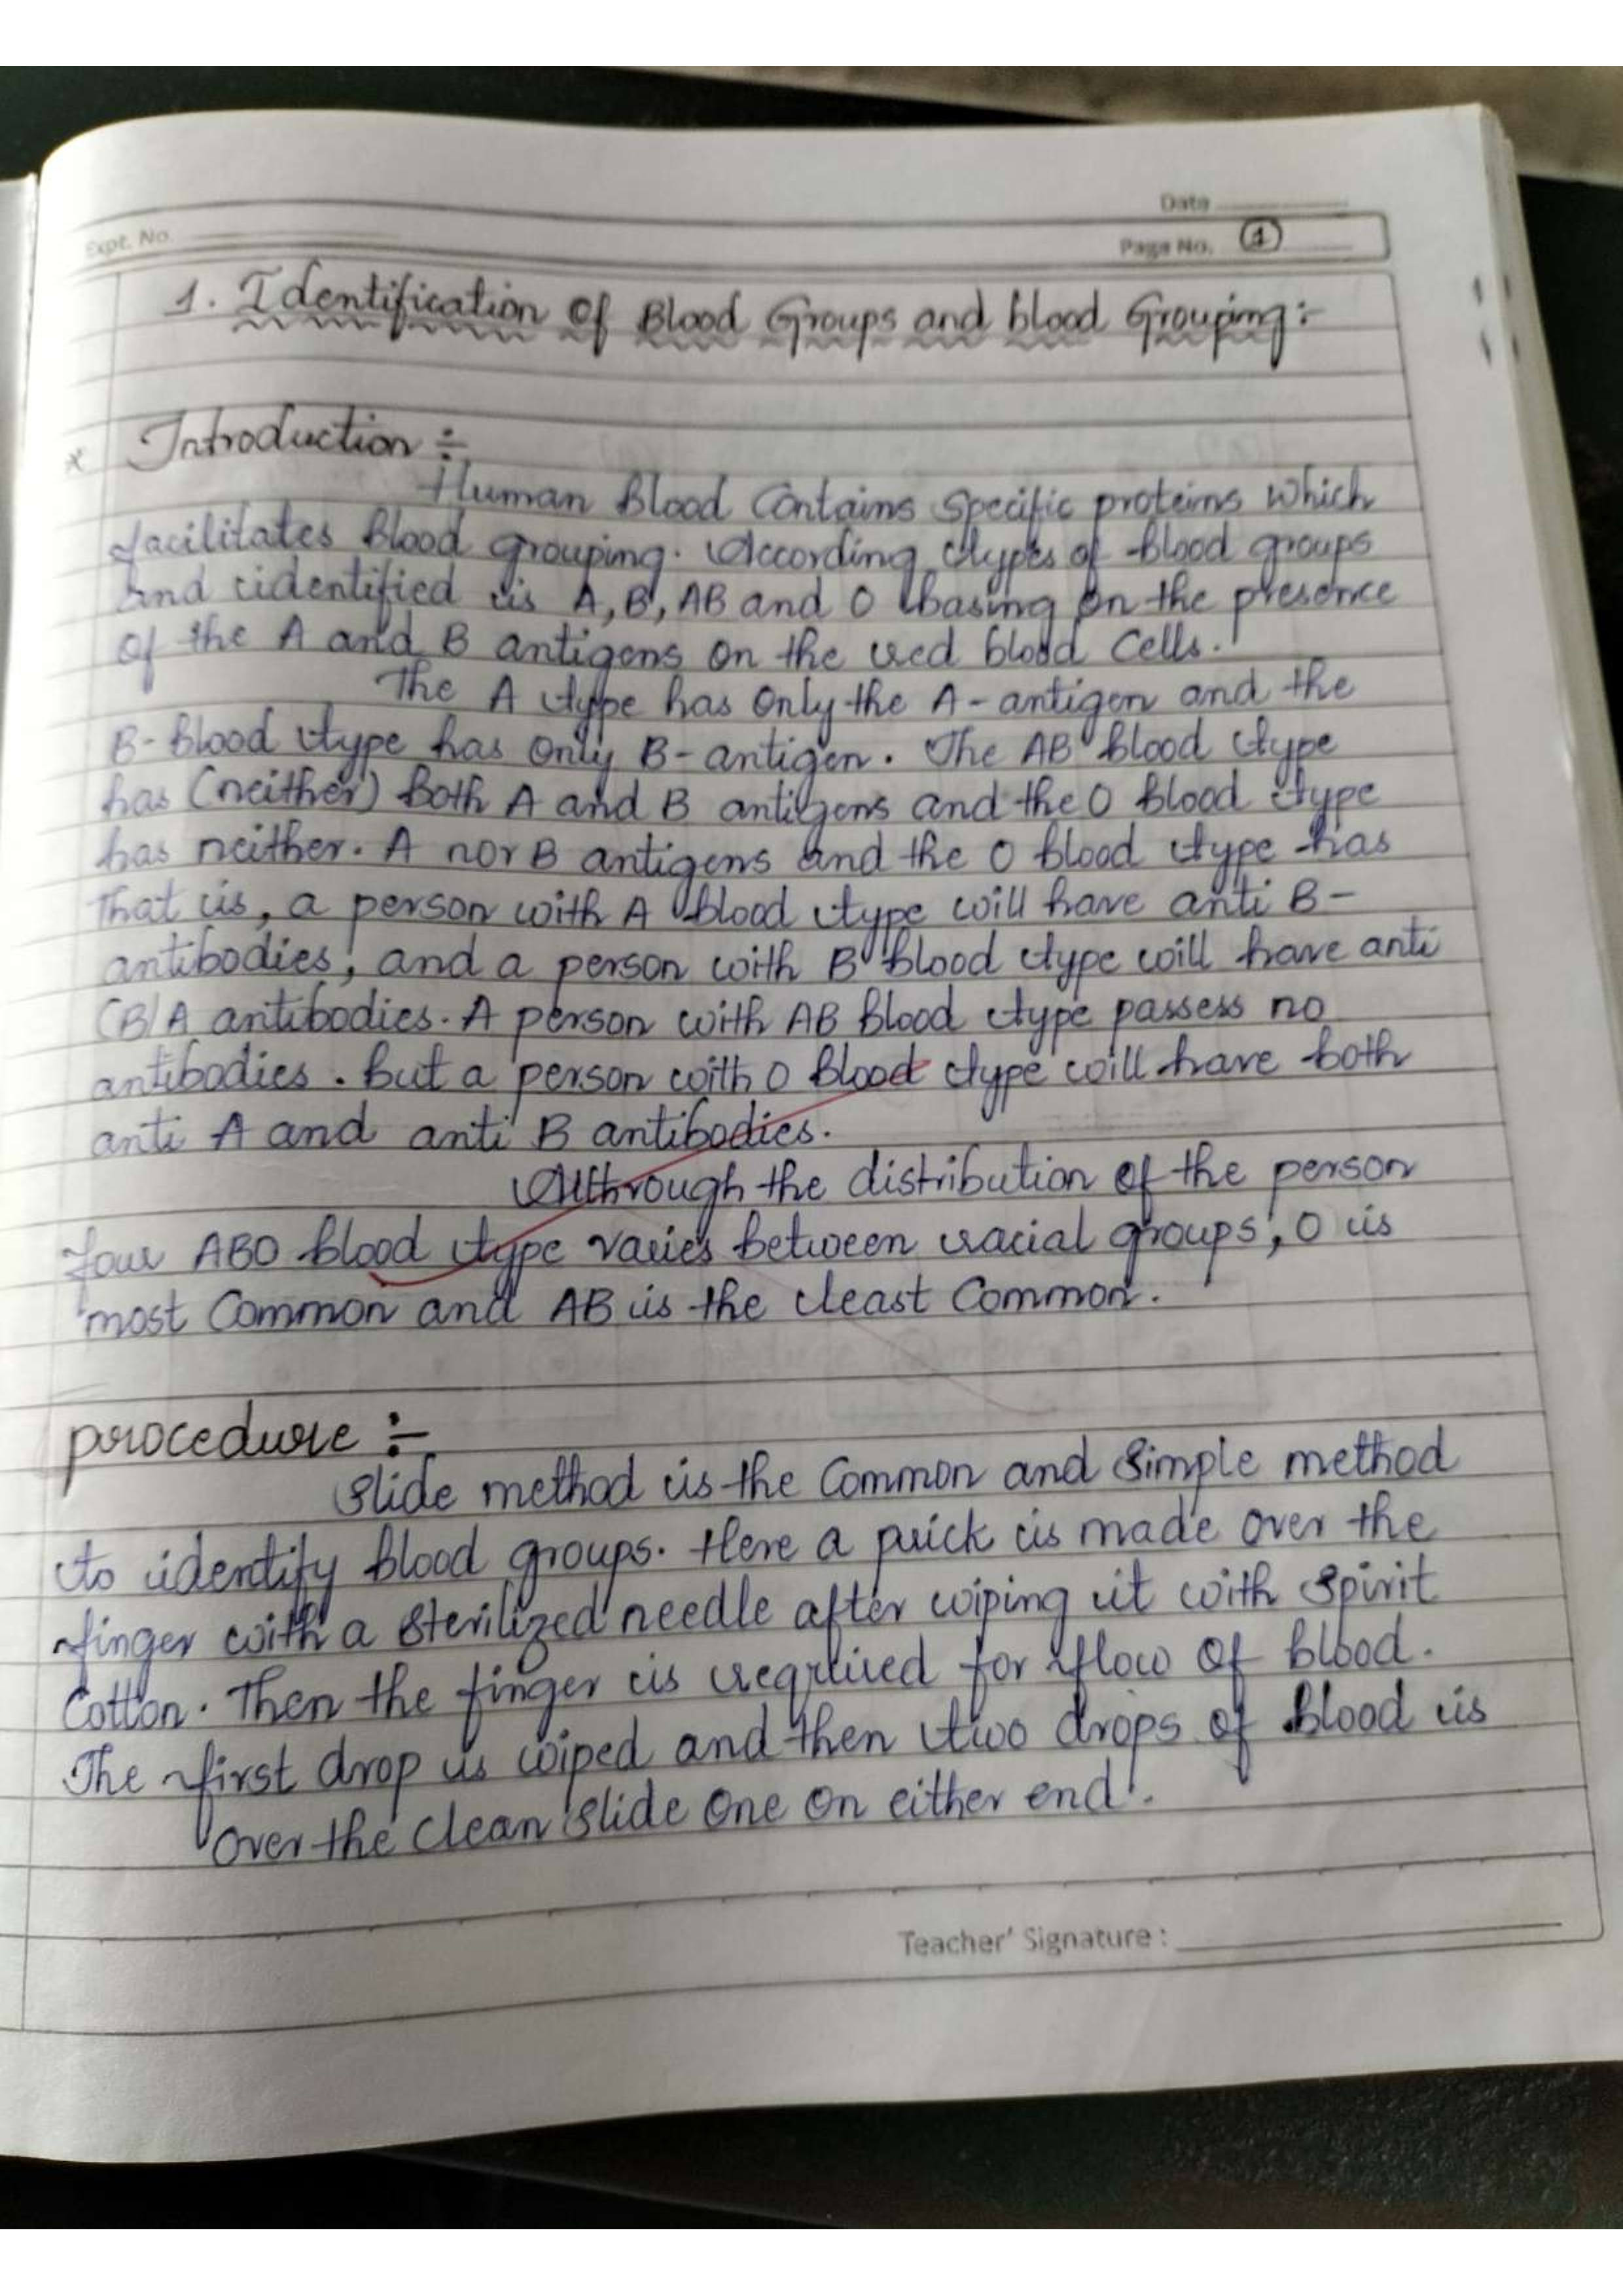 Date
Expt. No.
Page No. 1
1. Identification of Blood Groups and blood Grouping:-
* Introduction :-
Human Blood Contains Specific proteins which
facilitates Blood grouping. According types of blood groups
and identified is A, B, AB and O basing on the presence
of the A and B antigens on the red blood Cells.
The A type has Only the A- antigen and the
B- Blood type has Only B- antigen. The AB blood type
has (neither) Both A and B antigens and the O blood type
has neither. A nor B antigens and the O blood type has
That is, a person with A blood type will have anti B-
antibodies, and a person with B blood type will have anti
(B) A antibodies. A person with AB Blood type passess no
antibodies. But a person with O Blood type will have both
anti A and anti B antibodies.
Althrough the distribution of the person
four ABO blood type varies between racial groups, O is
most Common and AB is the least Common.
procedure :-
Slide method is the Common and Simple method
to identify blood groups. Here a prick is made over the
finger with a Sterilized needle after wiping it with Spirit
Cotton. Then the finger is required for flow of blood.
The first drop is wiped and then two drops of blood is
Over the clean slide One On either end.
Teacher' Signature :